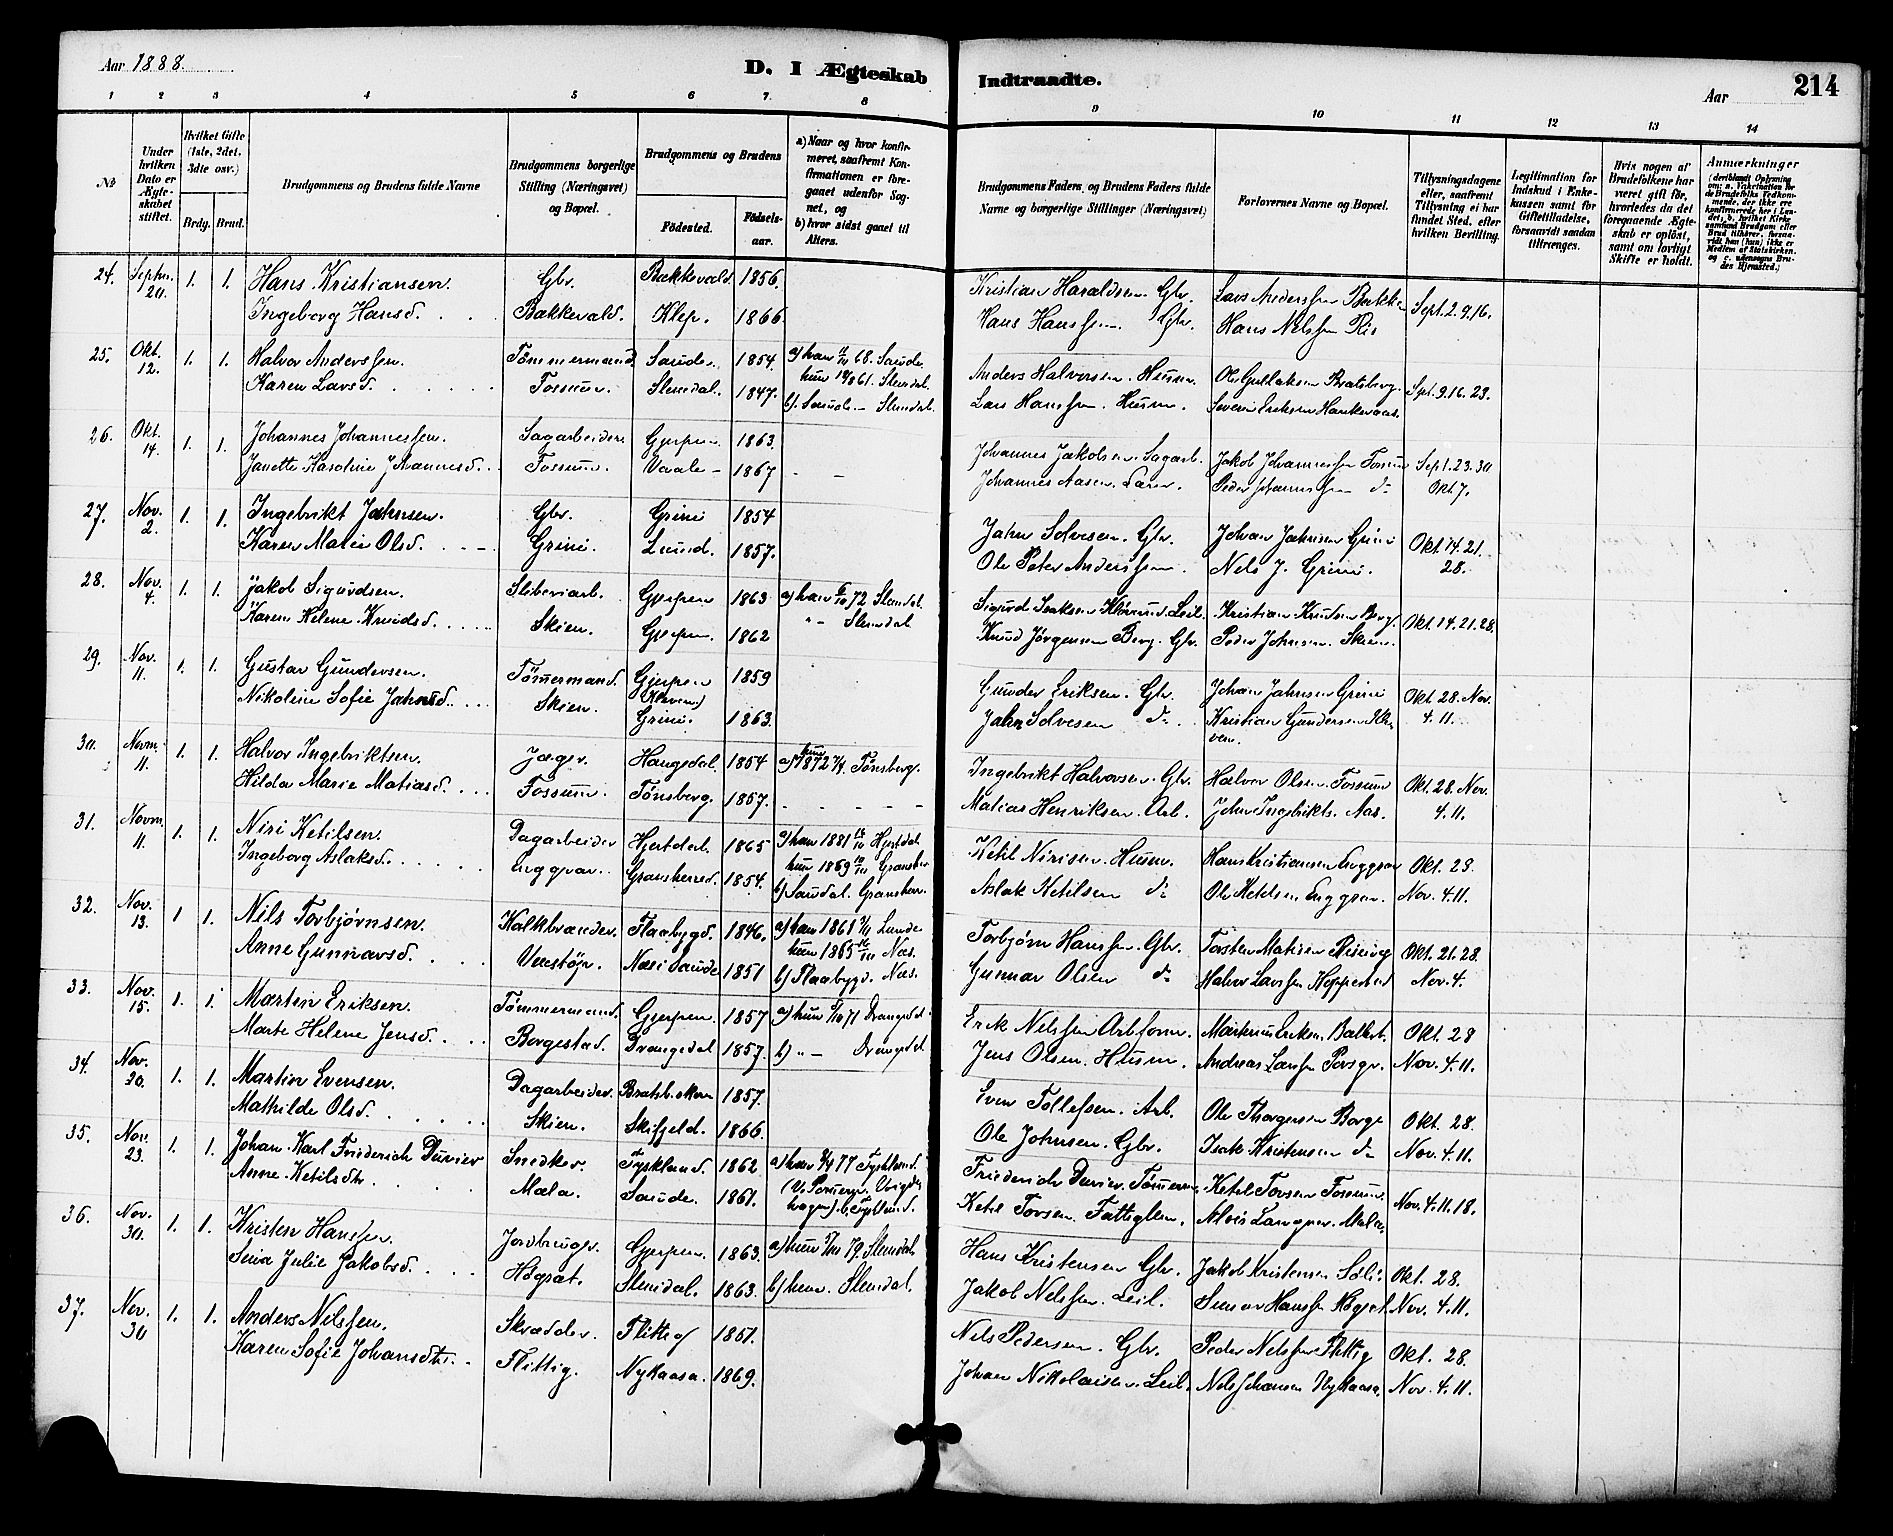 Aar 1888.
D. I Ægteskab Indtraadte.
Aar
214
1 2 3 4 5 6 7. 8 9 10 11 12 13 14
No
Under hvilken Dato er Ægteskabet stiftet.
Hvilket Gifte (1ste, 2det, 3dte osv.)
Brdg. Brud.
Brudgommens og Brudens fulde Navne
Brudgommens borgerlige Stilling (Næringsvei) og Bopæl.
Brudgommens og Brudens
Fødested. Fødselsaar.
a) Naar og hvor konfirmeret, saafremt Konfirmationen er foregaaet udenfor Sognet, og
b) hvor sidst gaaet til Alters.
Brudgommens Faders, og Brudens Faders fulde Navne og borgerlige Stillinger (Næringsvei)
Forlovernes Navne og Bopæl.
Tillysningsdagene eller, saafremt Tillysning ei har fundet Sted, efter hvilken Bevilling.
Legitimation for Indskud i Enkekassen samt for Giftetilladelse, forsaavidt saadan tiltrænges.
Hvis nogen af Brudefolkene har været gift før, hvorledes da det foregaaende Ægteskab er opløst, samt om lovligt Skifte er holdt.
Anmærkninger
24. Septbr. 20. 1. 1. Hans Kristiansen. Gbr. Bakkevald. 1856. Kristian Haraldsen. Gbr. Lars Anderssen Bakke Sept. 2. 9. 16.
Ingeborg Hansd. Bakkevald. Klep. 1866 Hans Hanssen. Gbr. Hans Nelssen Riis
25. Okt. 12. 1. 1. Halvor Anderssen. Tømmermand Saude. 1854. a) han 68. Saude Anders Halvorsen. Husm. Ole Gullaksen Bratsberg. Sept. 9. 16. 23.
Karen Larsd. Fossum. Slemdal. 1847. hun 1861. Slemdal. Lars Hanssen. Husm. Severin Eriksen Hankevaas.
b) Saude. – Slemdal.
26. Okt. 14. 1. 1. Johannes Johannessen. Sagarbeider Gjerpen 1863. Johannes Jakobsen. Sagarb. Jakob Johannessen Fossum Sept. 23. 30
Janette Karoline Johannesd. Fossum. Vaale – 1867 Johannes Aasen. Peder Johannessen do Okt. 7.
27. Nov. 2. 1. 1. Ingebrikt Jahnsen. Gbr. Grini 1854 Jahn Solvesen. Gbr. Johan Jahnsen Grini Okt. 14. 21.
Karen Marie Olsd. Grini. Lund. 1857. Ole Peter Anderssen Nels J. Grini. 28.
28. Nov. 4. 1. 1. Jakob Sigurdsen. Sliberiarb. Gjerpen 1863 a) han 72 Slemdal. Sigurd Isaksen Leil. Kristian Knudsen Berg. Okt. 14. 21. 28.
Karen Helene Knudsd. Skien. Gjerpen. 1862 Slemdal Knud Jørgensen Berg. Gbr. Peder Johnsen. Skien.
29. Nov. 11. 1. 1. Gustav Gundersen. Tømermand. Gjerpen 1859 Gunder Eriksen. Gbr. Johan Jahnsen Grini Okt. 28. Nov.
Nikoline Sofie Jahnsd. Skien. Grini. 1863. Jahn Solvesen do Kristian Gundersen 4. 11.
30. Novm. 11. 1. 1. Halvor Ingebriktsen. Jæger. Hangedal. 1854 a) hun 1872 Tønsberg. Ingebrikt Halvorsen. Gbr. Halvor Olsen Fossum Okt. 28. Nov.
Hilda Marie Matiasd. Fossum. Tønsberg. 1857. Matias Henriksen. Arb. Johan Ingebrikts. Aas. 4. 11.
31. Novm. 11. 1. 1. Niri Ketilsen. Dagarbeider Hjertdal. 1865 a) han 1881 Hjertdal Ketil Nirisen. Husm. Hans Kristiansen Enggrav Okt. 28.
Ingeborg Aslaksd. Enggrav. Gransherred. 1854. hun 1869 Gransher Aslak Ketilsen do Ole Ketilsen Enggrav. Nov. 4. 11.
b) Saudal. Gransherr.
32. Nov. 13. 1 1. Nils Torbjørnsen. Kalkbrænder. Flaabygd. 1846. a) han 1861 Lunde Torbjørn Hanssen. Gbr. Torsten Matisen Riising Okt. 21. 28.
Anne Gunnarsd. Venstøp. Næs i Saude 1851 hun 1865 Næs. Gunnar Olsen do Halvor Larssen Kopperbød Nov. 4.
b) Flaabygd. Næs.
33. Nov. 15. 1. 1. Martin Eriksen. Tømmermand. Gjerpen. 1857 a) hun 71 Drangedal Erik Nelssen Arbform. Martinus Eriksen. Balkst. Okt. 28
Marte Helene Jensd. Borgestad. Drangedal 1857. b) Drangedal. Jens Olsen. Husm. Andreas Larssen Porsgr. Nov. 4. 11.
34. Nov. 20. 1. 1. Martin Evensen. Dagarbeider. Bratsb. 1857. Even Tollefsen. Arb. Ole Thorgersen Borge Okt. 28.
Mathilde Olsd. Skien. Skifjeld. 1866. Ole Johnsen. Gbr. Isak Kristensen do Nov. 4. 11.
35. Nov. 23. 1. 1. Johan Karl Friederich Duvier Snedker. Tyskland. 1862. a) han 77 Tyskland. Friederich Duvier. Tømerm. Ketil Torsen Fossum. Nov. 4. 11. 18.
Anne Ketilsdtr. Mæla. Saude. 1861. b) Tyskland. Ketil Torsen. Fattiglem. Alvis Langgrav Mæla.
36. Nov. 30. 1. 1. Kristen Hanssen. Jordbruger. Gjerpen. 1863. a) hun 79 Slemdal. Hans Kristensen Gbr. Jakob Kristensen Søli. Okt. 28.
Sina Julie Jakobsd. Høgset. Slemdal. 1863. b) hun. Slemdal. Jakob Nelssen. Leil. Simon Hanssen Høgset Nov. 4. 11.
37. Nov. 30 1. 1. Anders Nelssen. Skrædder. Flittig 1861. Nels Pedersen. Gbr. Peder Nelssen Flittig Okt. 28.
Karen Sofie Johansdtr. Flittig. Nykaasa. 1869. Johan Nikolaisen. Leil. Nels Johansen Nykaasa. Nov. 4. 11.